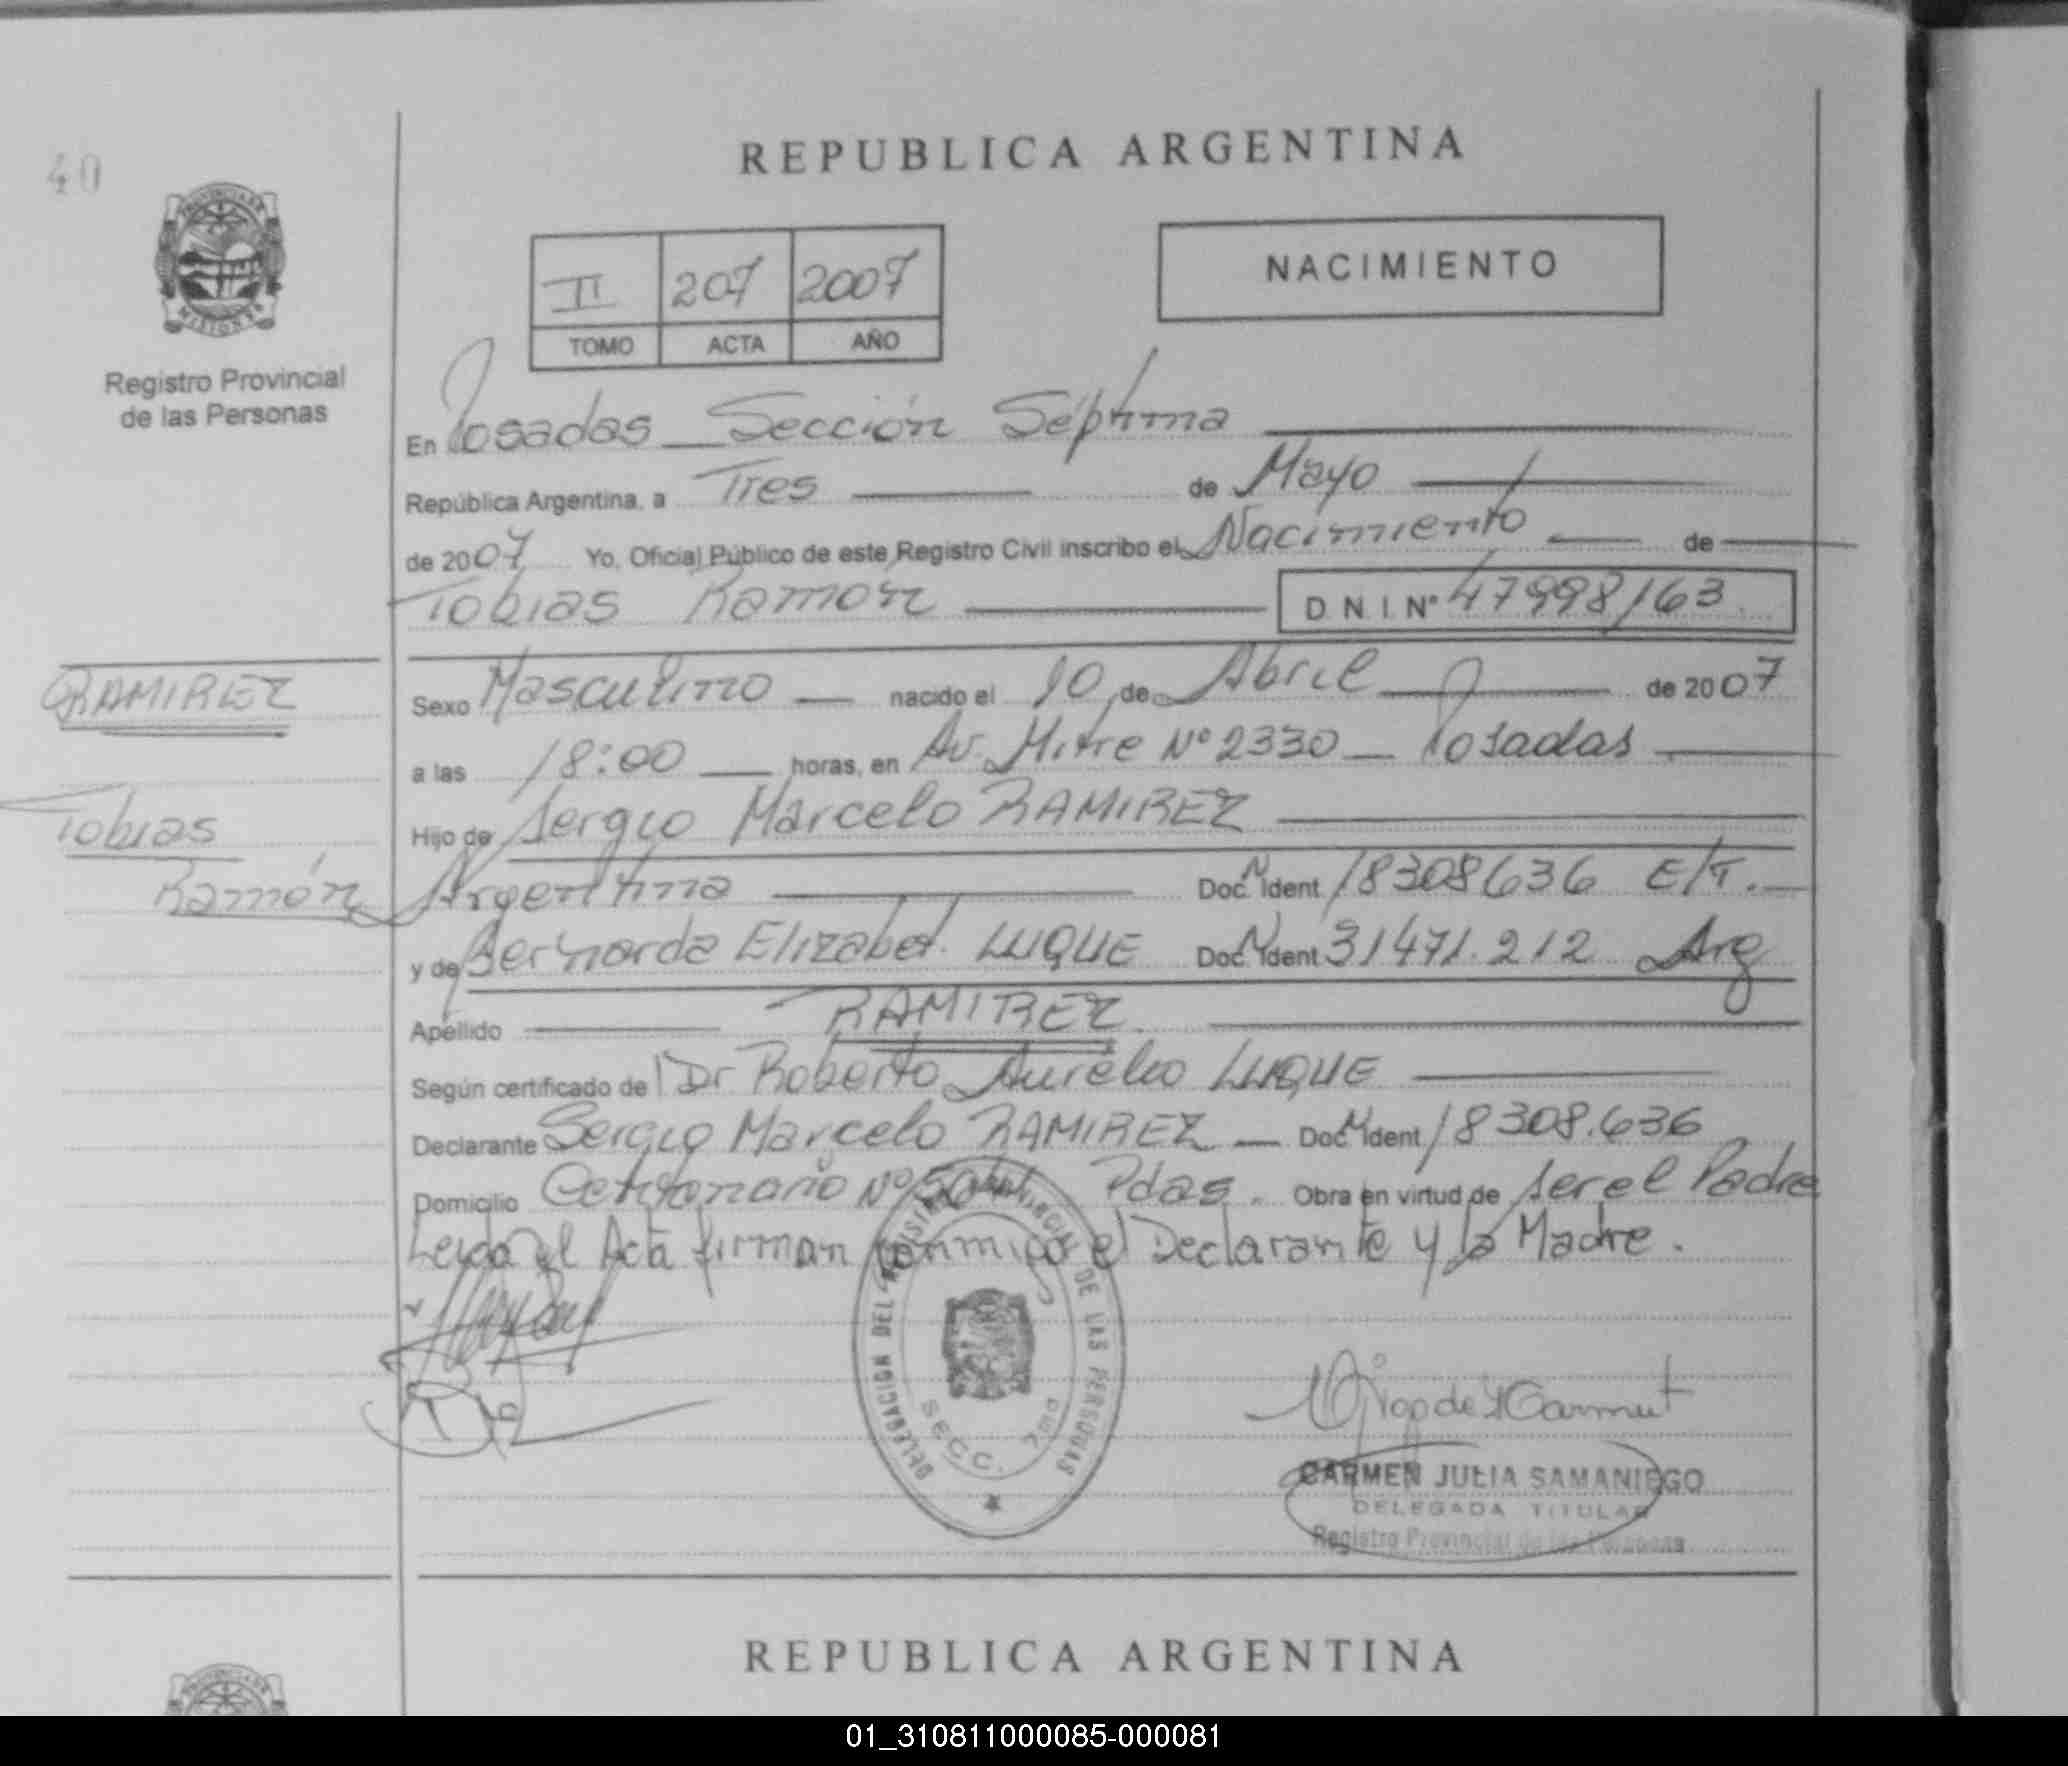 40
REPUBLICA ARGENTINA
PROVINCIA DE
MISIONES
Registro Provincial
de las Personas
II 207 2007
TOMO ACTA AÑO
NACIMIENTO
En Posadas Sección Séptima
República Argentina, a Tres de Mayo
de 2007 Yo, Oficial Público de este Registro Civil inscribo el Nacimiento de
Tobias Ramón D.N.I. Nº 47998163
RAMIREZ
Sexo Masculino nacido el 10 de Abril de 2007
a las 18:00 horas, en Av. Mitre Nº 2330 Posadas
Tobias
Hijo de Sergio Marcelo RAMIREZ
Ramón
Argentina Doc. Ident 18308636 E/T.
y de Bernarda Elizabet LUQUE Doc. Ident 31471.212 Arg
Apellido RAMIREZ
Según certificado de Dr Roberto Aurelio LUQUE
Declarante Sergio Marcelo RAMIREZ Doc. Ident 18308.636
Domicilio Centenario Nº Pdas. Obra en virtud de ser el Padre
Leida el Acta firman conmigo el Declarante y la Madre.
DELEGACION DEL REGISTRO PROVINCIAL DE LAS PERSONAS
SECC. 7ma
CARMEN JULIA SAMANIEGO
DELEGADA TITULAR
Registro Provincial de las Personas
REPUBLICA ARGENTINA
01_310811000085-000081